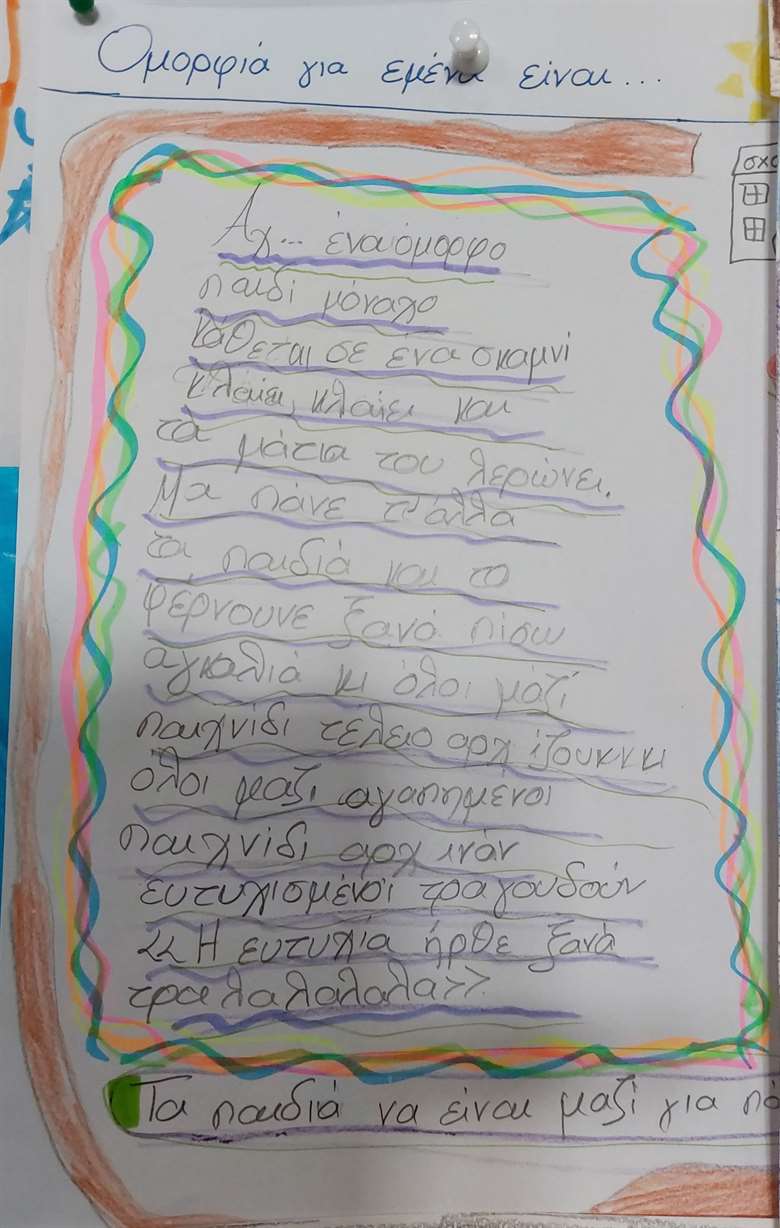 Ομορφιά για εμένα είναι...
σχο
Αχ... ένα όμορφο
παιδί μόναχο
κάθεται σε ένα σκαμνί
κλαίει, κλαίει και
τα μάτια του λερώνει.
Μα πάνε τ' άλλα
τα παιδιά και το
φέρνουνε ξανά πίσω
αγκαλιά κι όλοι μαζί
παιχνίδι τέλειο αρχίζουν κι
όλοι μαζί αγαπημένοι
παιχνίδι αρχινάν
ευτυχισμένοι τραγουδούν
<< Η ευτυχία ήρθε ξανά
τρα λα λαλαλαλα>>
Τα παιδιά να είναι μαζί για πά